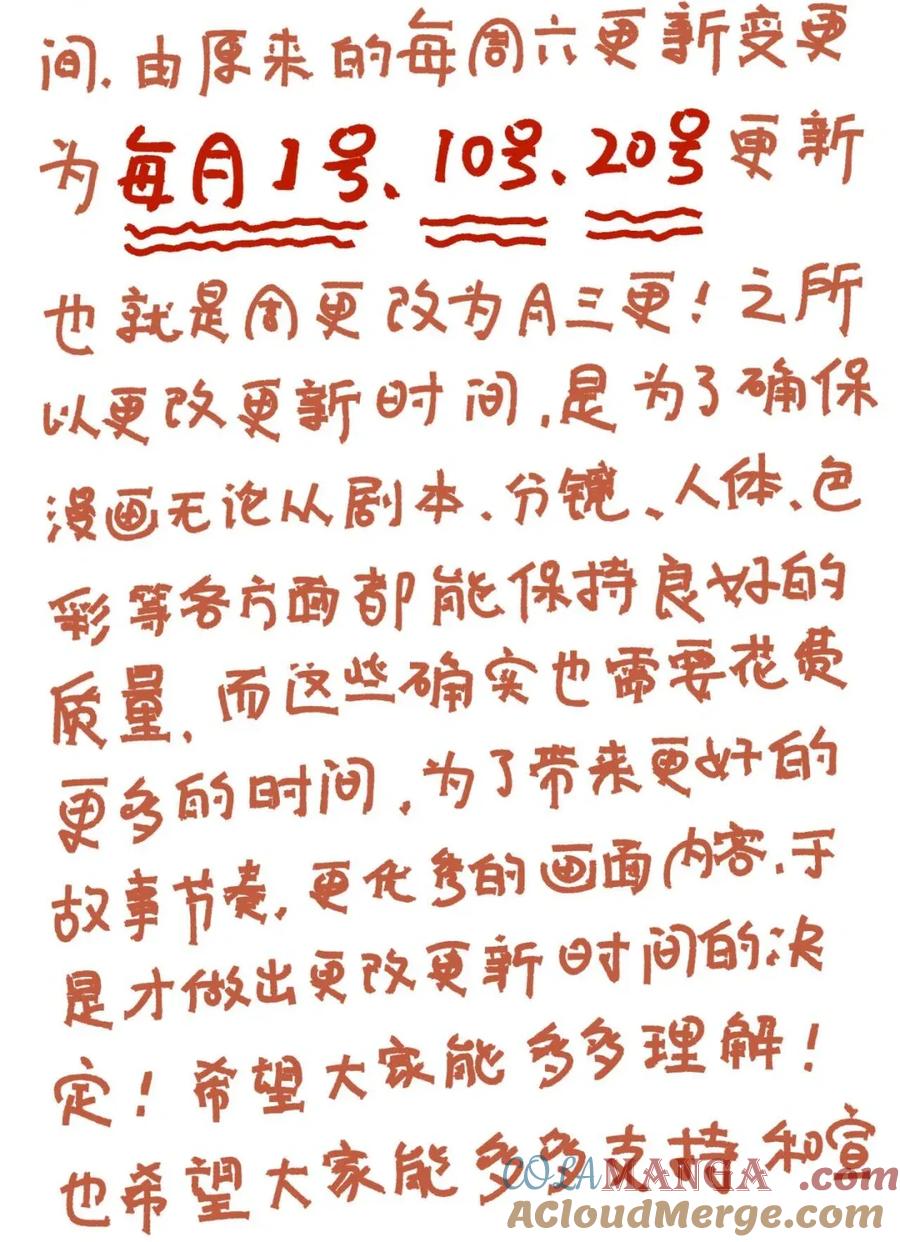 间.由原来的每周六更新变更
为每月1号、10号、20号更新
也就是周更改为月三更!之所
以更改更新时间,是为了确保
漫画无论从剧本、分镜、人体、色
彩等各方面都能保持良好的
质量,而这些确实也需要花费
更多的时间,为了带来更好的
故事节奏,更优秀的画面内容,于
是才做出更改更新时间的决
定!希望大家能多多理解!
也希望大家能多多支持和宣
COLAMANGA.com
ACloudMerge.com